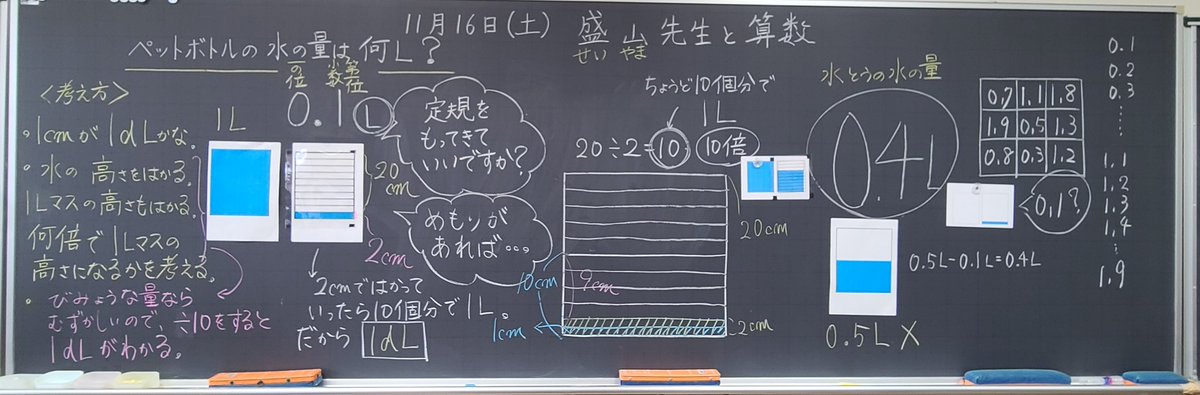 11月16日(土) 盛山先生と算数
せい やま
ペットボトルの水の量は何L?
一の位
小数第一位
0.1L
<考え方>
・1cmが1dLかな。
・水の高さをはかる。
1Lマスの高さもはかる。
何倍で1Lマスの
高さになるかを考える。
・びみょうな量なら
むずかしいので、÷10をすると
1dLがわかる。
1L
20cm
2cm
2cmではかって
いったら10個分で1L。
だから 1dL
定規を
もってきて
いいですか?
めもりが
あれば…。
ちょうど10個分で
1L
20÷2=10 10倍
20cm
10cm
9cm
1cm
2cm
水とうの水の量
0.4L
0.5L-0.1L=0.4L
0.5L X
0.7 1.1 1.8
1.9 0.5 1.3
0.8 0.3 1.2
0.1?
0.1
0.2
0.3
⋮
1.1
1.2
1.3
1.4
⋮
1.9